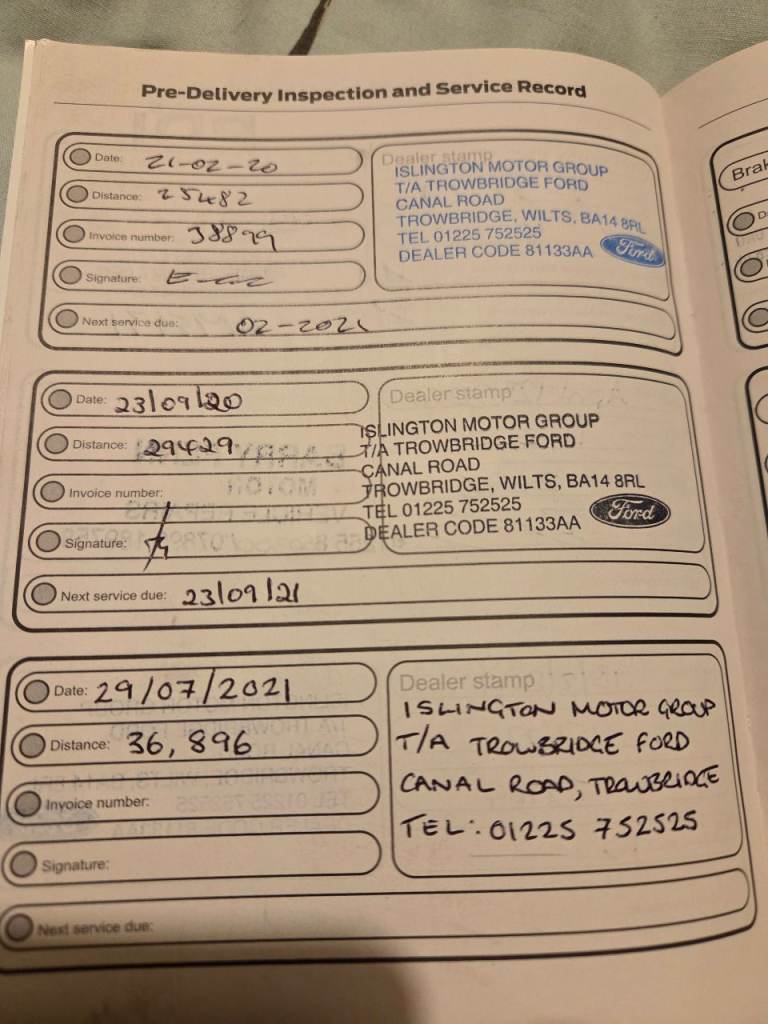 Pre-Delivery Inspection and Service Record
Date: 21-02-20
Distance: 25482
Invoice number: 38899
Signature:
Next service due: 02-2021
Dealer stamp
ISLINGTON MOTOR GROUP
T/A TROWBRIDGE FORD
CANAL ROAD
TROWBRIDGE, WILTS, BA14 8RL
TEL 01225 752525
DEALER CODE 81133AA
Ford
Date: 23/09/20
Distance: 29429
Invoice number:
Signature:
Next service due: 23/09/21
Dealer stamp
ISLINGTON MOTOR GROUP
T/A TROWBRIDGE FORD
CANAL ROAD
TROWBRIDGE, WILTS, BA14 8RL
TEL 01225 752525
DEALER CODE 81133AA
Ford
Date: 29/07/2021
Distance: 36,896
Invoice number:
Signature:
Next service due:
Dealer stamp
ISLINGTON MOTOR GROUP
T/A TROWBRIDGE FORD
CANAL ROAD, TROWBRIDGE
TEL: 01225 752525
Brak